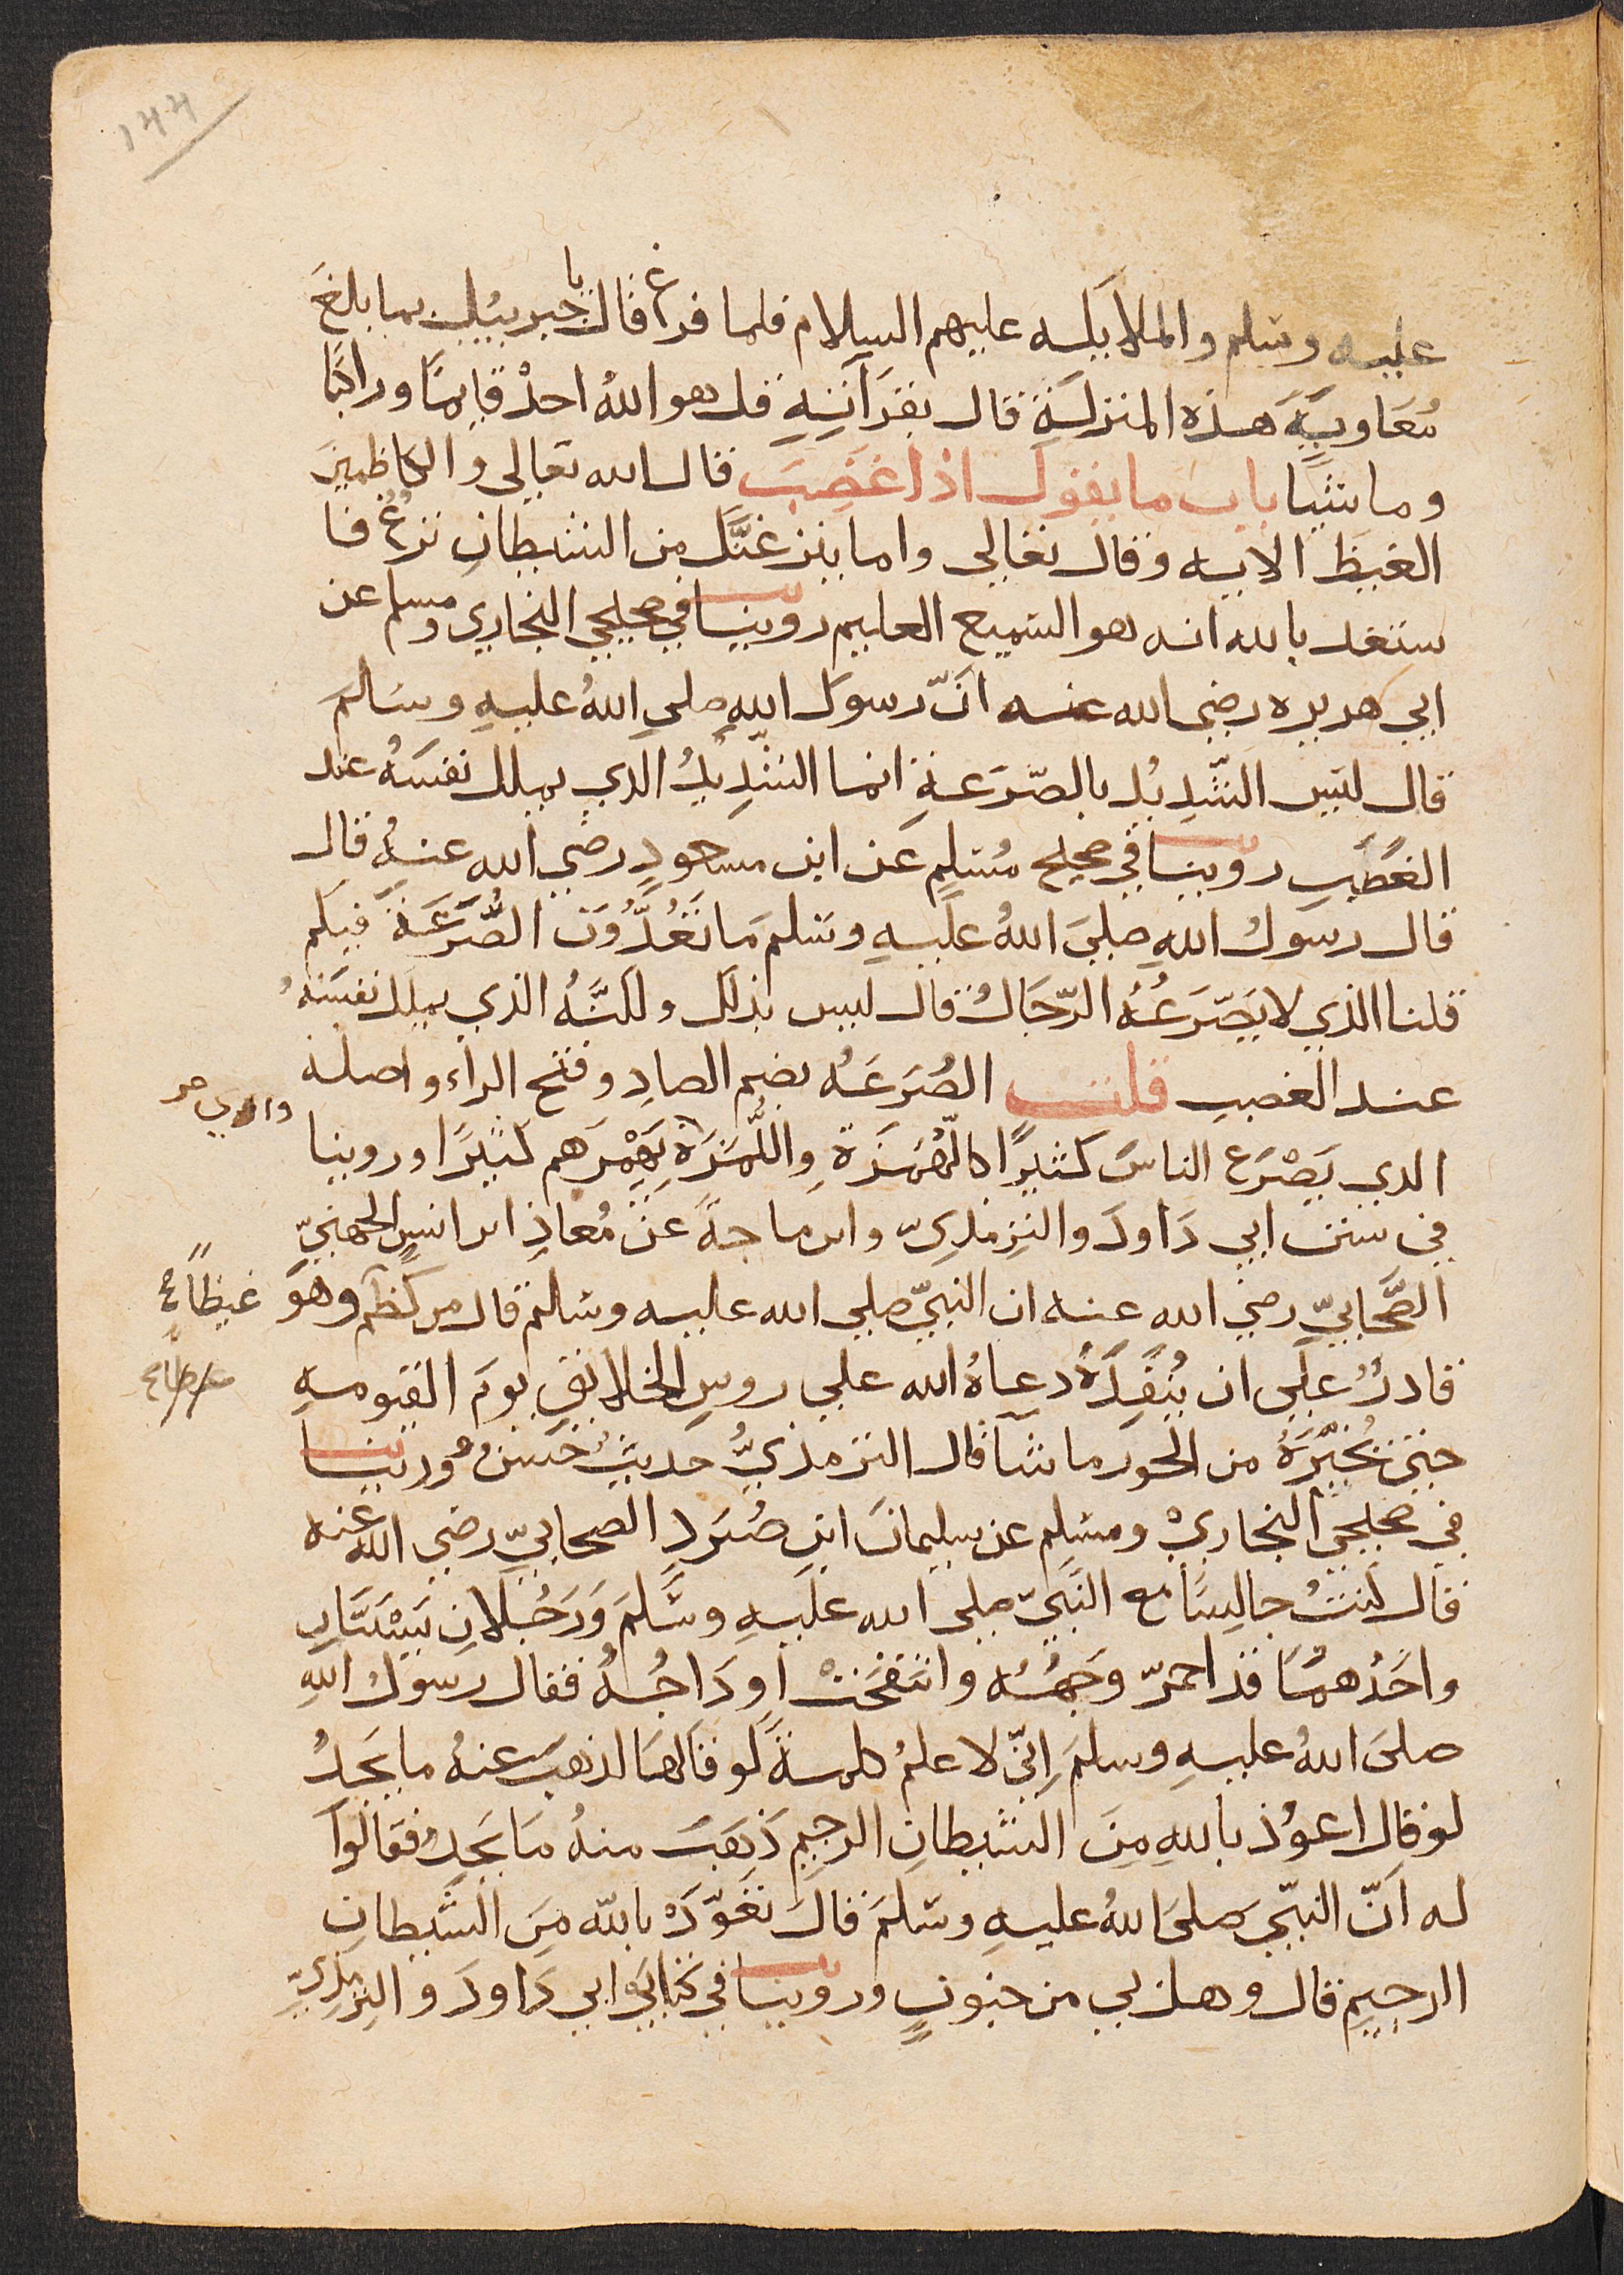 ١٤٤
عليه وسلم والملايكه عليهم السلام فلما فرغ قال يا جبريل بما بلغ
مُعَاويةَ هذه المنزلةِ قال بقرَآنِهِ قل هو اللهُ احدْ قايمًا وراكبًا
وماشيًا باب ما يقول اذا غضِبَ قال الله تعالى والكاظمينَ
الغيظَ الايه وقال تعالى واما ينزغنَّك من الشيطانِ نزغٌ فا
ستعذ بالله انه هو السميع العليم روينا في صحيحي البخاري ومسلم عن
ابي هريره رضى الله عنه انّ رسول اللهِ صلي اللهُ عليهِ وسلمَ
قال ليس الشّدِيْدُ بالصّرَعةِ انما الشّدِيدُ الذي يملك نفسَهُ عند
الغضبِ روينا في صحيح مُسْلم عن ابن مسعودٍ رضي الله عنهُ قال
قال رسولُ اللهِ صلىَ اللهُ عليهِ وسلم مَا تَعُدُّوُنَ الصُّرَعَةَ فيكم
قلنا الذي لا يَصْرَعُهُ الرّجَالُ قال ليس بذلك ولكنَّهُ الذي يملك نفسَهُ
عند الغضبِ قلت الصُرَعَهُ بضم الصادِ وفتح الراء واصله
الذي يَصْرَع الناسَ كثيرًا كالهُمَزَةِ واللُّمَزَةِ يَهْمِزَهم كثيرًا وروينا
في سنن ابي دَاودَ والترمذيّ وابن ماجةَ عَنْ مُعاذِ ابن انسٍ الجهنيّ
الصّحَابيّ رضي الله عنه ان النبيّ صلي الله عليه وسلم قال من كظم وهوَ
غيظًا
قادرٌ علَى ان يُنْفِذَهُ دعاهُ الله علي روسِ الخلايقِ يومَ القيومهِ
حتىَ يُخَيّرَهُ من الحور ما شآ قال الترمذيُّ حديثٌ حَسَنٌ وروينا
في صحيحيَ البخاريْ ومسْلم عن سليمانَ ابن صُرَدٍ الصحابيّ رضي الله عنه
قال كنتُ جالِسًا مع النَّبيّ صلى الله عليهِ وسَّلمَ وَرَجُلانِ يَسْتَبَّانِ
واحَدُهمَا قد احمرّ وَجهُهُ وانتفخَتْ اودَاجُهُ فقال رسولُ اللهِ
صلىَ اللهُ عليهِ وسلمَ اِنّي لاعلمُ كلمةً لو قالها لذهبَ عنهُ ما يَجدُ
لو قال اعوُذ باللهِ مِنَ الشيطانِ الرجيمِ ذَهَبَ منهُ مَا يَجدُ فقالوُا
له انّ النبيّ صلىَ اللهُ عليهِ وسَلمَ قالَ تعَوّذْ باللّه مِنَ الشَّيطانِ
الرجيمِ قال وهل بي من جنونٍ وروينا في كتابَي ابي دَاودَ والترمذيّ